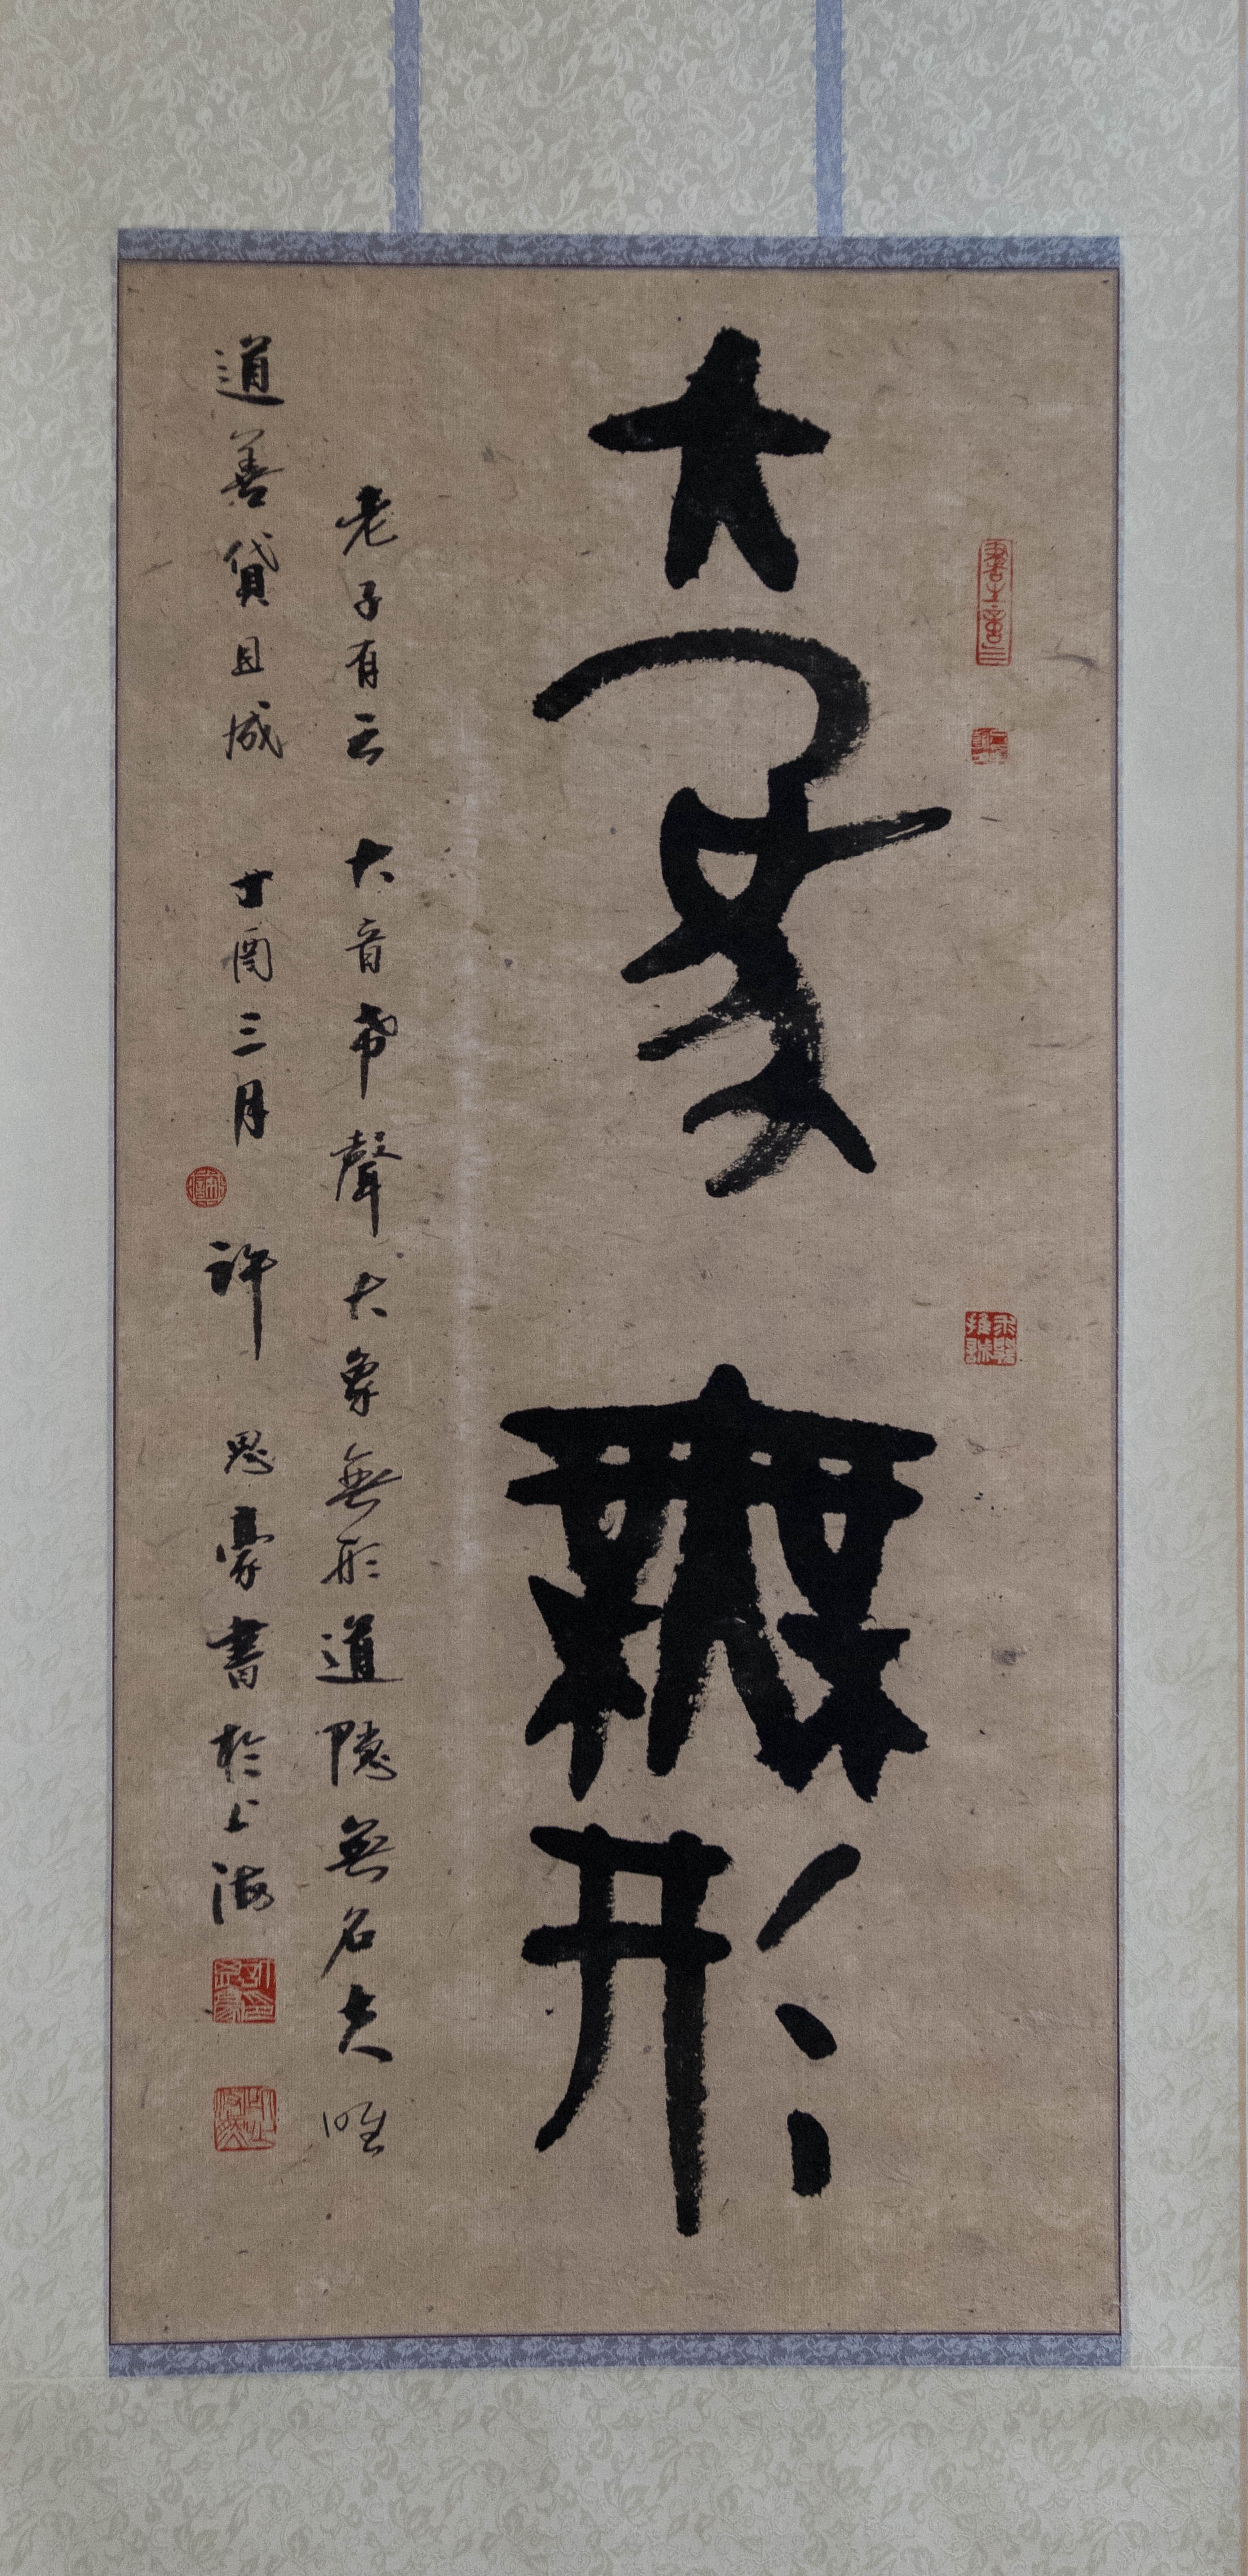 大象無形
老子有云 大音希聲大象無形道隱無名夫唯
道善貸且成 丁酉三月 許 思豪書於上海